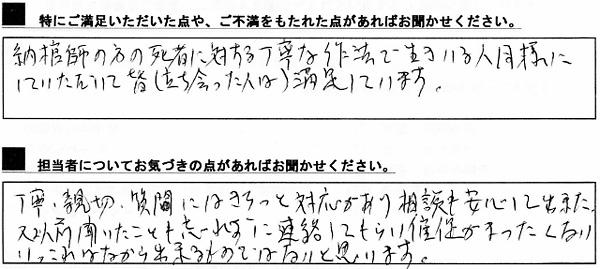 特にご満足いただいた点や、ご不満をもたれた点があればお聞かせください。
納棺師の方の死者に対する丁寧な作法で生きている人同様に
していただいて皆(立ち会った人は)満足しています。
担当者についてお気づきの点があればお聞かせください。
丁寧・親切、質問にはきちっと対応があり相談も安心して出来た。
又以前聞いたことも忘れずに連絡してもらい催促がまったくない
これはなかなか出来るものではないと思います。